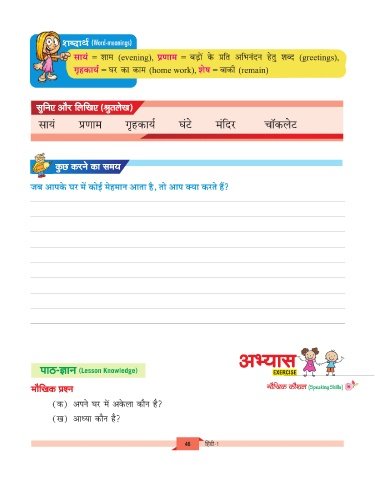 शब्दार्थ (Word-meanings)
सायं = शाम (evening), प्रणाम = बड़ों के प्रति अभिनंदन हेतु शब्द (greetings),
गृहकार्य = घर का काम (home work), शेष = बाकी (remain)
सुनिए और लिखिए (श्रुतलेख)
सायं प्रणाम गृहकार्य घंटे मंदिर चॉकलेट
कुछ करने का समय
जब आपके घर में कोई मेहमान आता है, तो आप क्या करते हैं?
अभ्यास
EXERCISE
पाठ-ज्ञान (Lesson Knowledge)
मौखिक कौशल (Speaking Skills)
मौखिक प्रश्न
(क) अपने घर में अकेला कौन है?
(ख) आध्या कौन है?
46 हिंदी-1